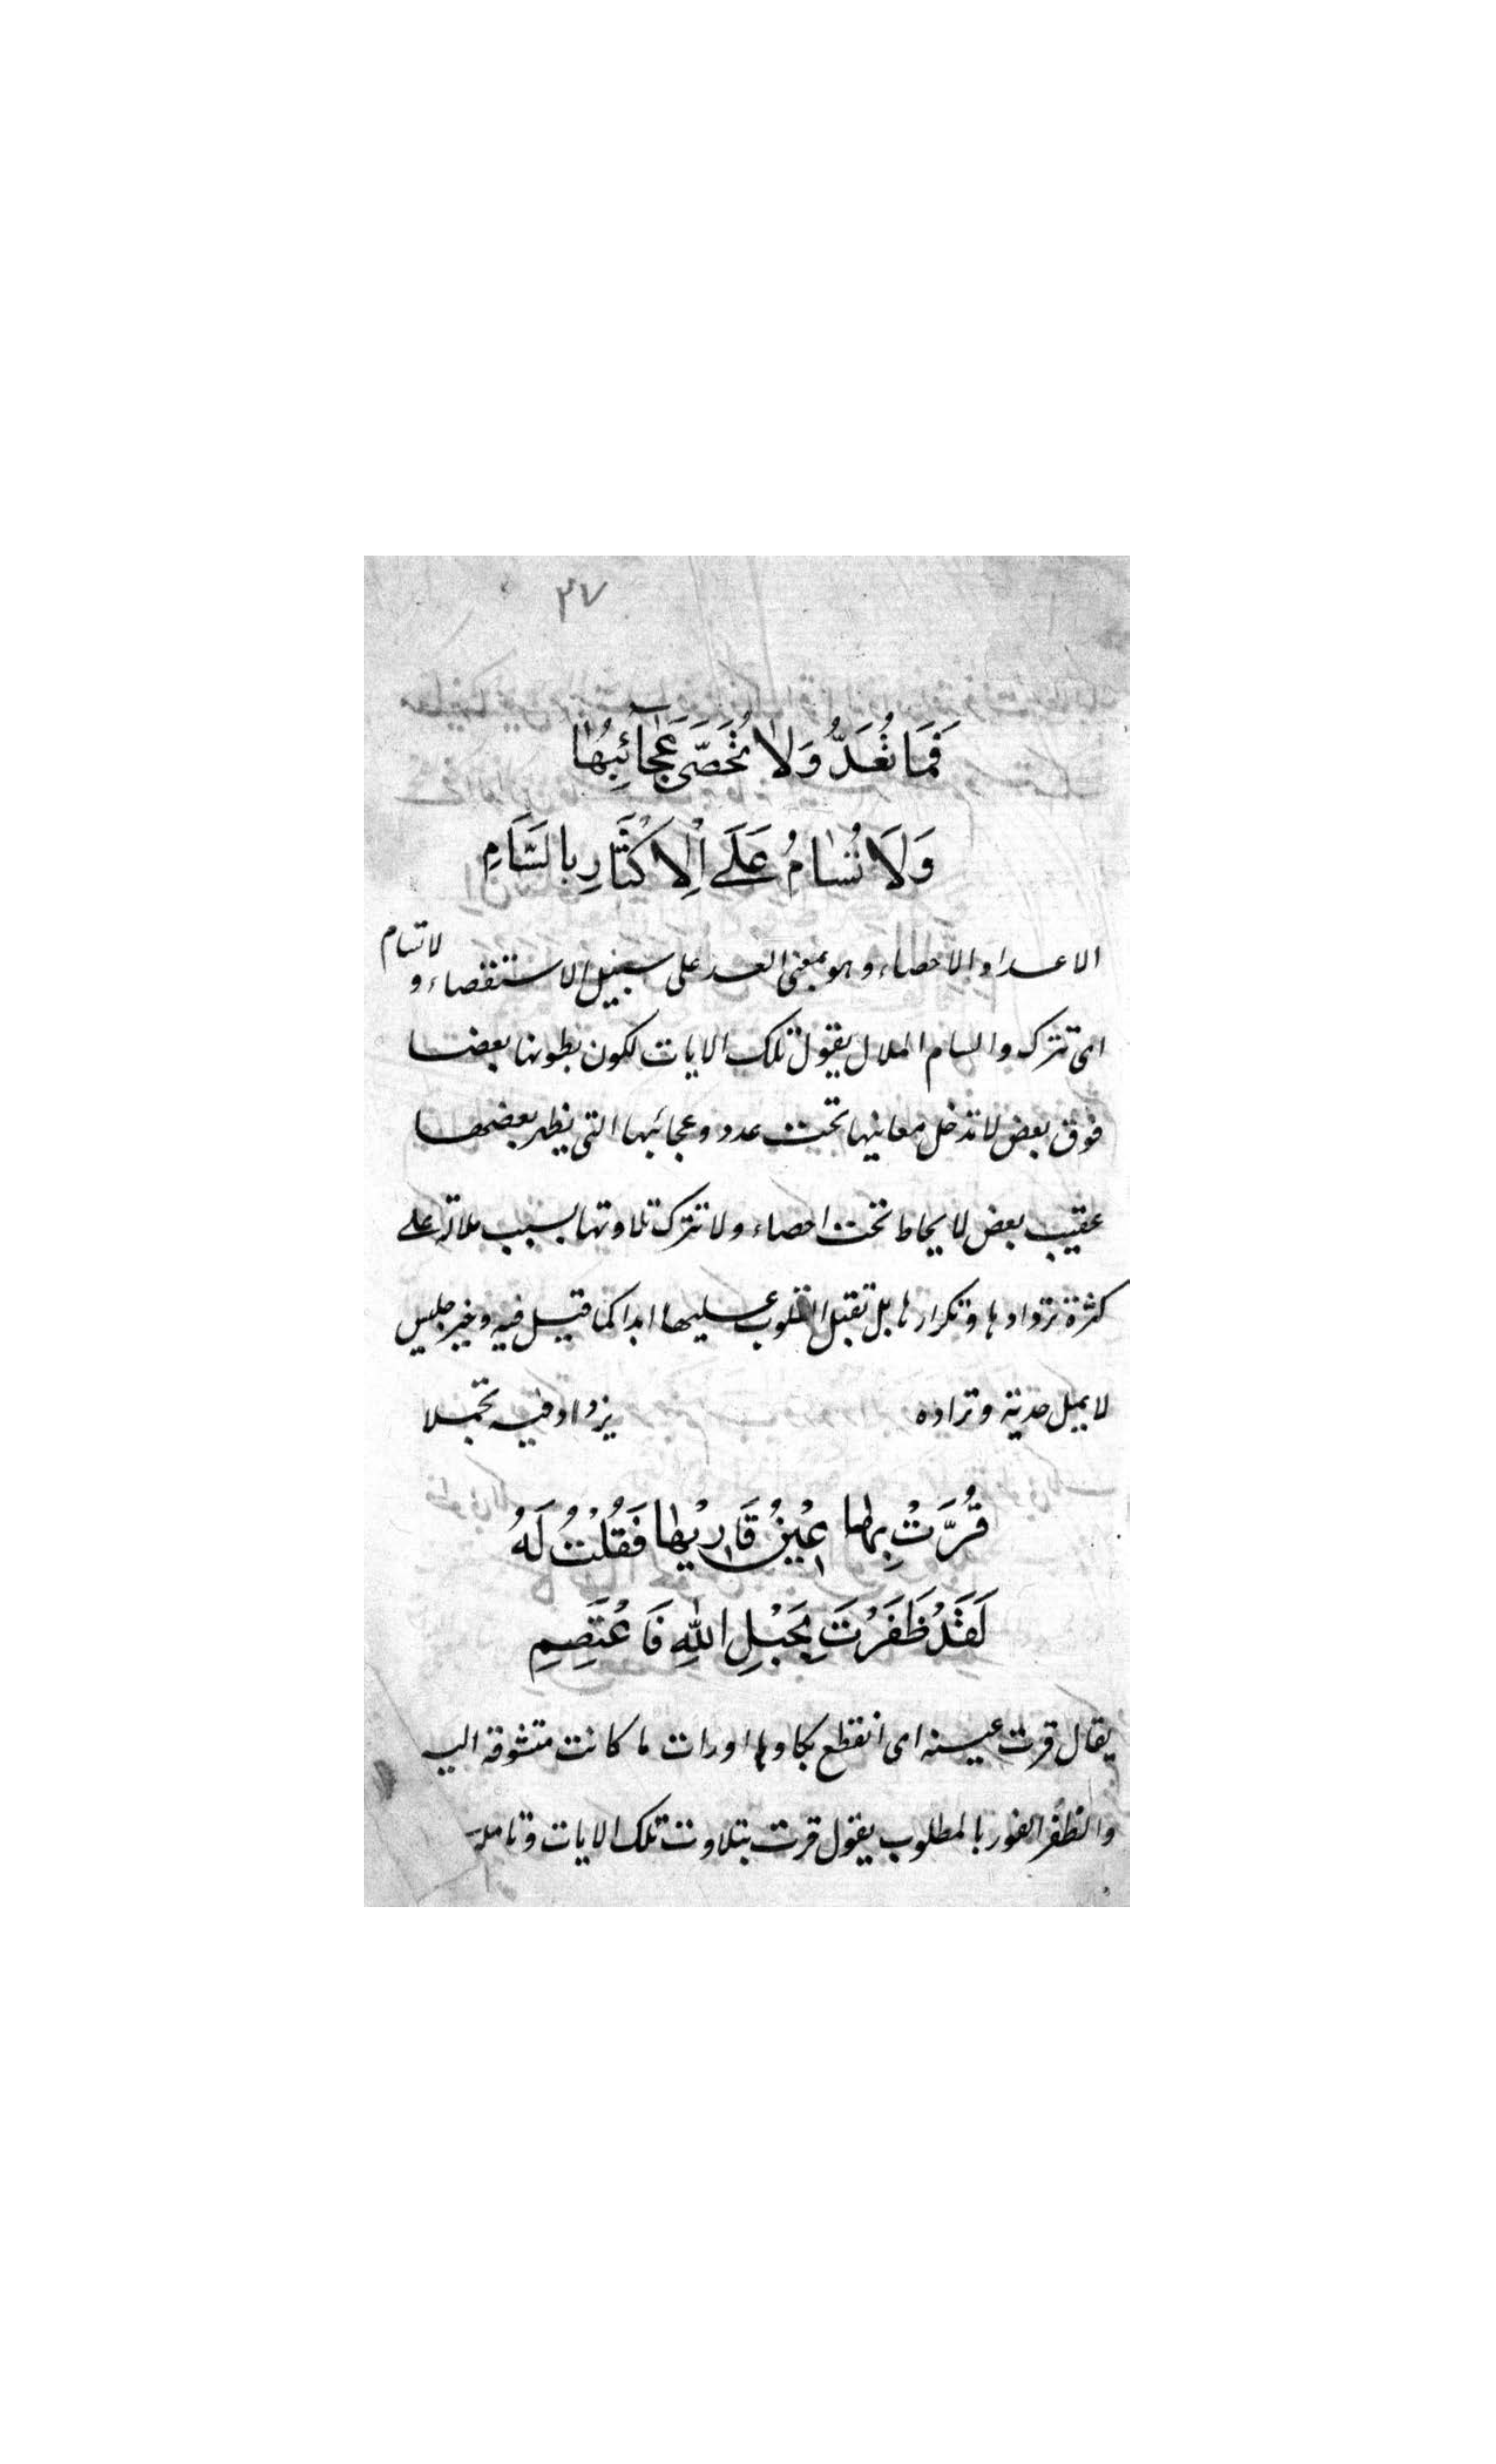 ٣٧
فَمَا تُعَدُّ وَلَا تُحْصَى عَجَآئِبُهَا
وَلَا تُسَامُ عَلَى الْاِكْثَارِ بِالسَّاَمِ
الاعداد الاحصاء وهو بمعنى العد على سبيل الاستقصاء و لا تسام
اى تترك والسام الملال يقول تلك الايات لكون بطونها بعضا
فوق بعض لا تدخل معانيها تحت عدد وعجائبها التى يظهر بعضها
عقيب بعض لا يحاط تحت احصاء ولا تترك تلاوتها بسبب ملالة على
كثرة تردادها وتكرارها بل تقبل القلوب عليها ابدا كما قيل فيه وخير جليس
لا يمل حديثه وترداده يزداد فيه تجملا
قُرَّتْ بِهَا عَيْنُ قَارِيْهَا فَقُلْتُ لَهُ
لَقَدْ ظَفَرْتَ بِحَبْلِ اللهِ فَاعْتَصِمِ
يقال قرت عينه اى انقطع بكاوها او رات ما كانت متشوقة اليه
والظفر الفوز بالمطلوب يقول قرت بتلاوت تلك الايات وتامله